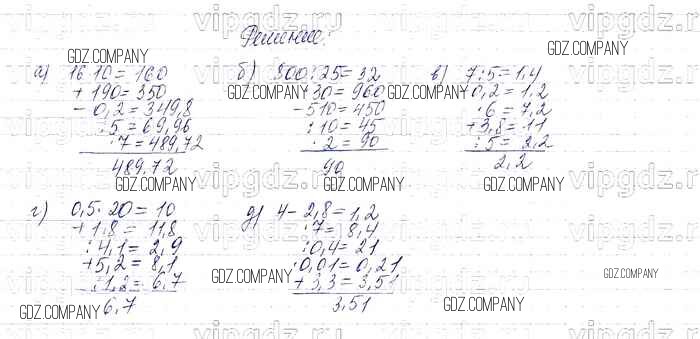 Решение:
а) 16·10=160
+190=350
-0,2=349,8
:5=69,96
·7=489,72
489,72
б) 800:25=32
·30=960
-510=450
:10=45
·2=90
90
в) 7:5=1,4
-0,2=1,2
·6=7,2
+3,8=11
:5=2,2
2,2
г) 0,5·20=10
+1,8=11,8
:4,1=2,9
+5,2=8,1
:1,2=6,7
6,7
д) 4-2,8=1,2
·7=8,4
:0,4=21
·0,01=0,21
+3,3=3,51
3,51
GDZ.COMPANY
GDZ.COMPANY
GDZ.COMPANY
GDZ.COMPANY
GDZ.COMPANY
GDZ.COMPANY
GDZ.COMPANY
GDZ.COMPANY
GDZ.COMPANY
GDZ.COMPANY
GDZ.COMPANY
vipgdz.ru